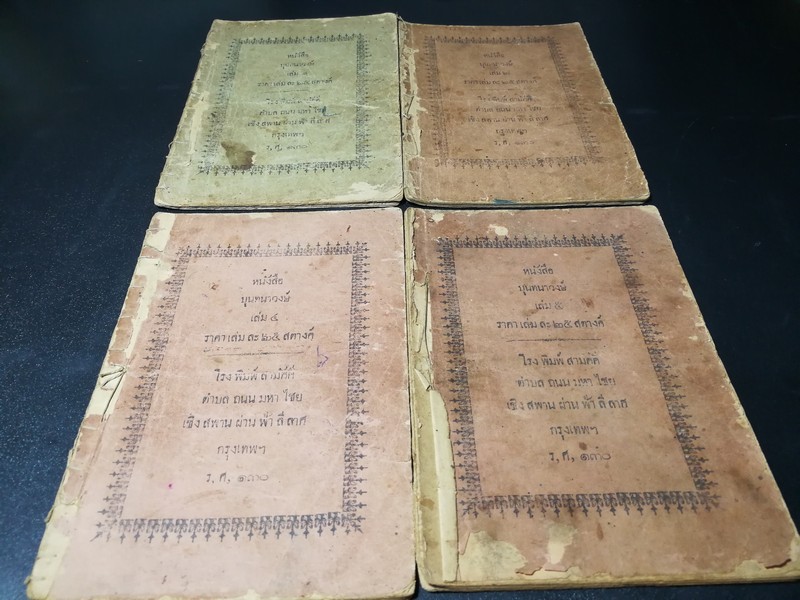 หนังสือ
บุนทนาวงษ์
เล่ม
ราคา เล่ม ละ ๒๕ สตางค์
โรง พิมพ์
ตำบล ถนน มหา ไชย
เชิง สพาน ผ่าน ฟ้า ลี ลาศ
กรุงเทพฯ
ร, ศ, ๑๓๐
หนังสือ
เล่ม
ราคา เล่ม ละ ๒๕ สตางค์
โรง พิมพ์ สามัคคี
ตำบล ถนน มหา ไชย
เชิง สพาน ผ่าน ฟ้า ลี ลาศ
กรุงเทพฯ
ร, ศ, ๑๓๐
หนังสือ
บุนทนาวงษ์
เล่ม ๔
ราคา เล่ม ละ ๒๕ สตางค์
โรง พิมพ์ สามัคคี
ตำบล ถนน มหา ไชย
เชิง สพาน ผ่าน ฟ้า ลี ลาศ
กรุงเทพฯ
ร, ศ, ๑๓๐
หนังสือ
บุนทนาวงษ์
เล่ม ๕
ราคา เล่ม ละ ๒๕ สตางค์
โรง พิมพ์ สามัคคี
ตำบล ถนน มหา ไชย
เชิง สพาน ผ่าน ฟ้า ลี ลาศ
กรุงเทพฯ
ร, ศ, ๑๓๐